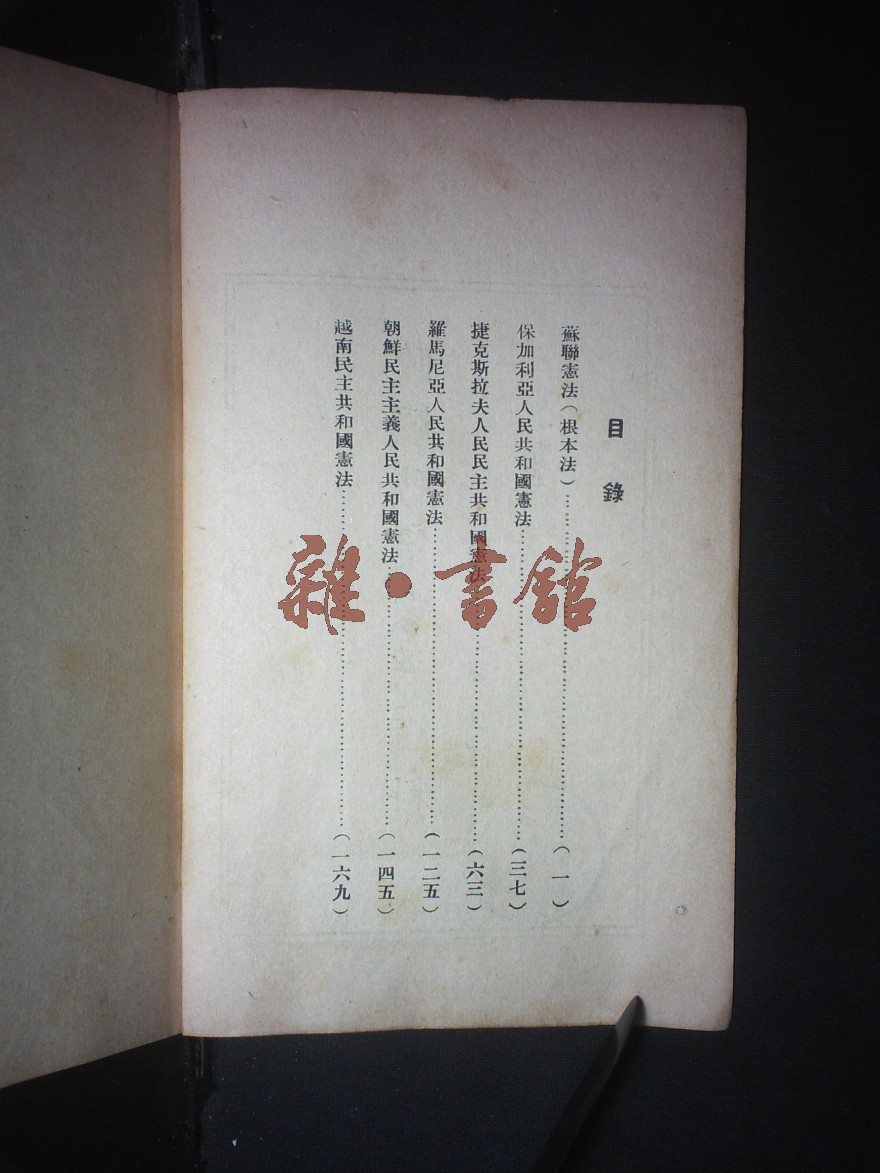 目錄
蘇聯憲法(根本法)……(一)
保加利亞人民共和國憲法……(三七)
捷克斯拉夫人民民主共和國憲法……(六三)
羅馬尼亞人民共和國憲法……(一二五)
朝鮮民主主義人民共和國憲法……(一四五)
越南民主共和國憲法……(一六九)
雜·書館